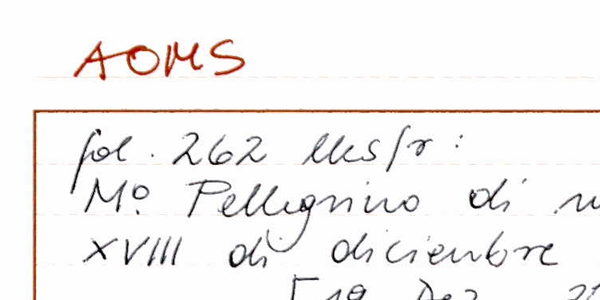 AOMS
fol. 262
Mo. Pellegrino di
XVIII di diciembre
[19. Dez.